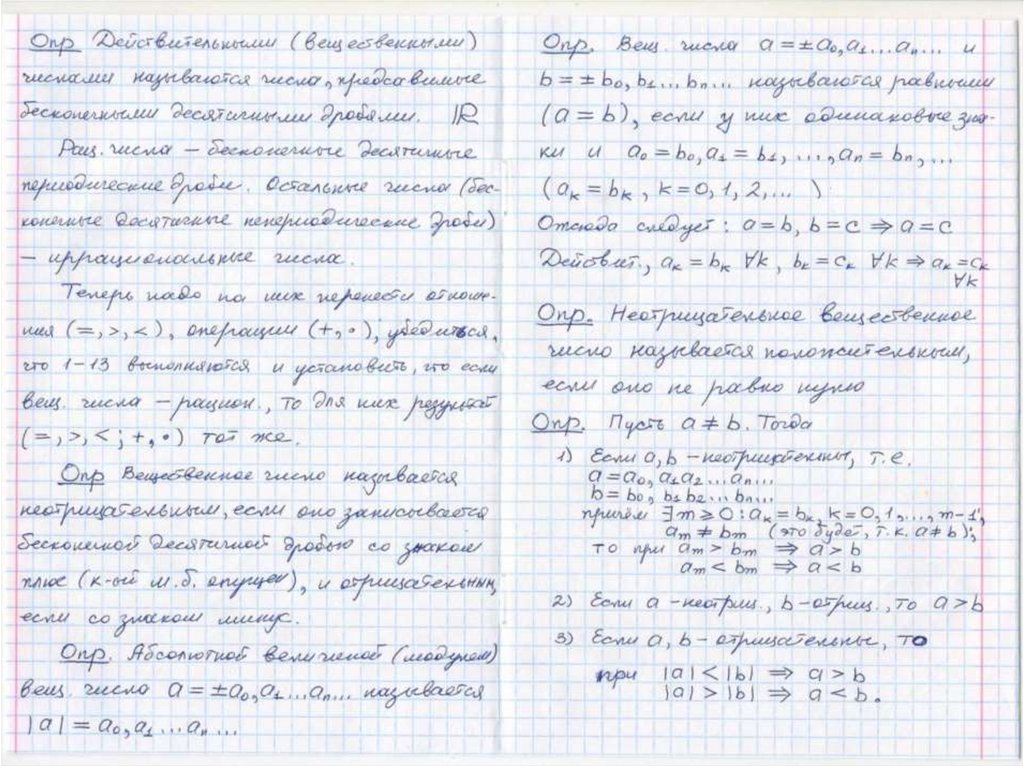 Опр Действительными (вещественными)
числами называются числа, предсавимые
бесконечными десятичными дробями. ℝ
Рац. числа — бесконечные десятичные
периодические дроби. Остальные числа (бес-
конечные десятичные непериодические дроби)
— иррациональные числа.
Теперь надо на них перенести отноше-
ния (=, >, <), операции (+, •), убедиться,
что 1–13 выполняются и установить, что если
вещ. числа — рацион., то для них результат
(=, >, <; +, •) тот же.
Опр Вещественное число называется
неотрицательным, если оно записывается
бесконечной десятичной дробью со знаком
плюс (к-ый м.б. опущен), и отрицательным,
если со знаком минус.
Опр. Абсолютной величиной (модулем)
вещ. число a = ±a₀,a₁...aₙ... называется
|a| = a₀,a₁...aₙ...
Опр. Вещ. числа a = ±a₀,a₁...aₙ... и
b = ±b₀,b₁...bₙ... называются равными
(a = b), если у них одинаковые зна-
ки и a₀ = b₀, a₁ = b₁, ..., aₙ = bₙ, ...
(aₖ = bₖ, k = 0, 1, 2, ... )
Отсюда следует: a = b, b = c ⇒ a = c
Действит., aₖ = bₖ ∀k, bₖ = cₖ ∀k ⇒ aₖ = cₖ
∀k
Опр. Неотрицательное вещественное
число называется положительным,
если оно не равно нулю
Опр. Пусть a ≠ b. Тогда
1) Если a, b – неотрицательны, т.е.
a = a₀,a₁a₂...aₙ...
b = b₀,b₁b₂...bₙ...
причём ∃m ≥ 0: aₖ = bₖ, k = 0, 1, ..., m-1;
aₘ ≠ bₘ (это будет, т.к. a ≠ b);
то при aₘ > bₘ ⇒ a > b
aₘ < bₘ ⇒ a < b
2) Если a – неотриц., b – отриц., то a > b
3) Если a, b – отрицательны, то
при |a| < |b| ⇒ a > b
|a| > |b| ⇒ a < b.